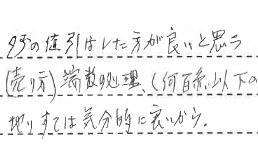 多少の値引はした方が良いと思う
(売り方)端数の処理、(何百糸以下の
切りすては気分的に良いから。